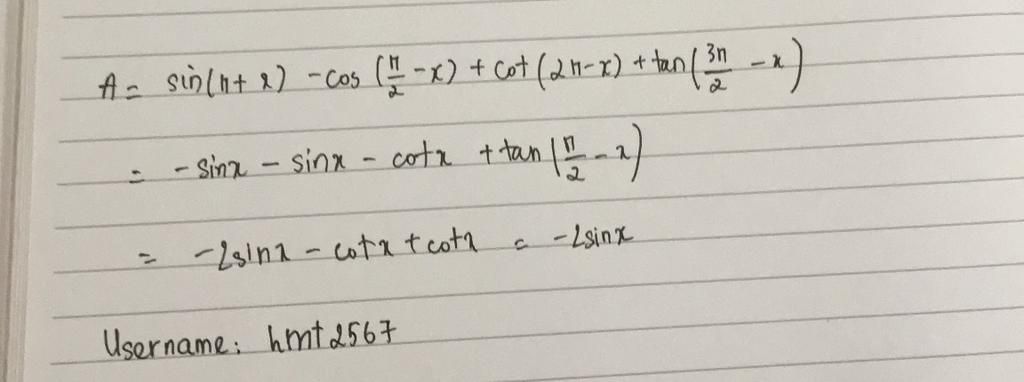 A = sin(π + x) - cos (π/2 - x) + cot (2π - x) + tan (3π/2 - x)
= - sinx - sinx - cotx + tan (π/2 - x)
= -2sinx - cotx + cotx = -2sinx
Username: hmt2567